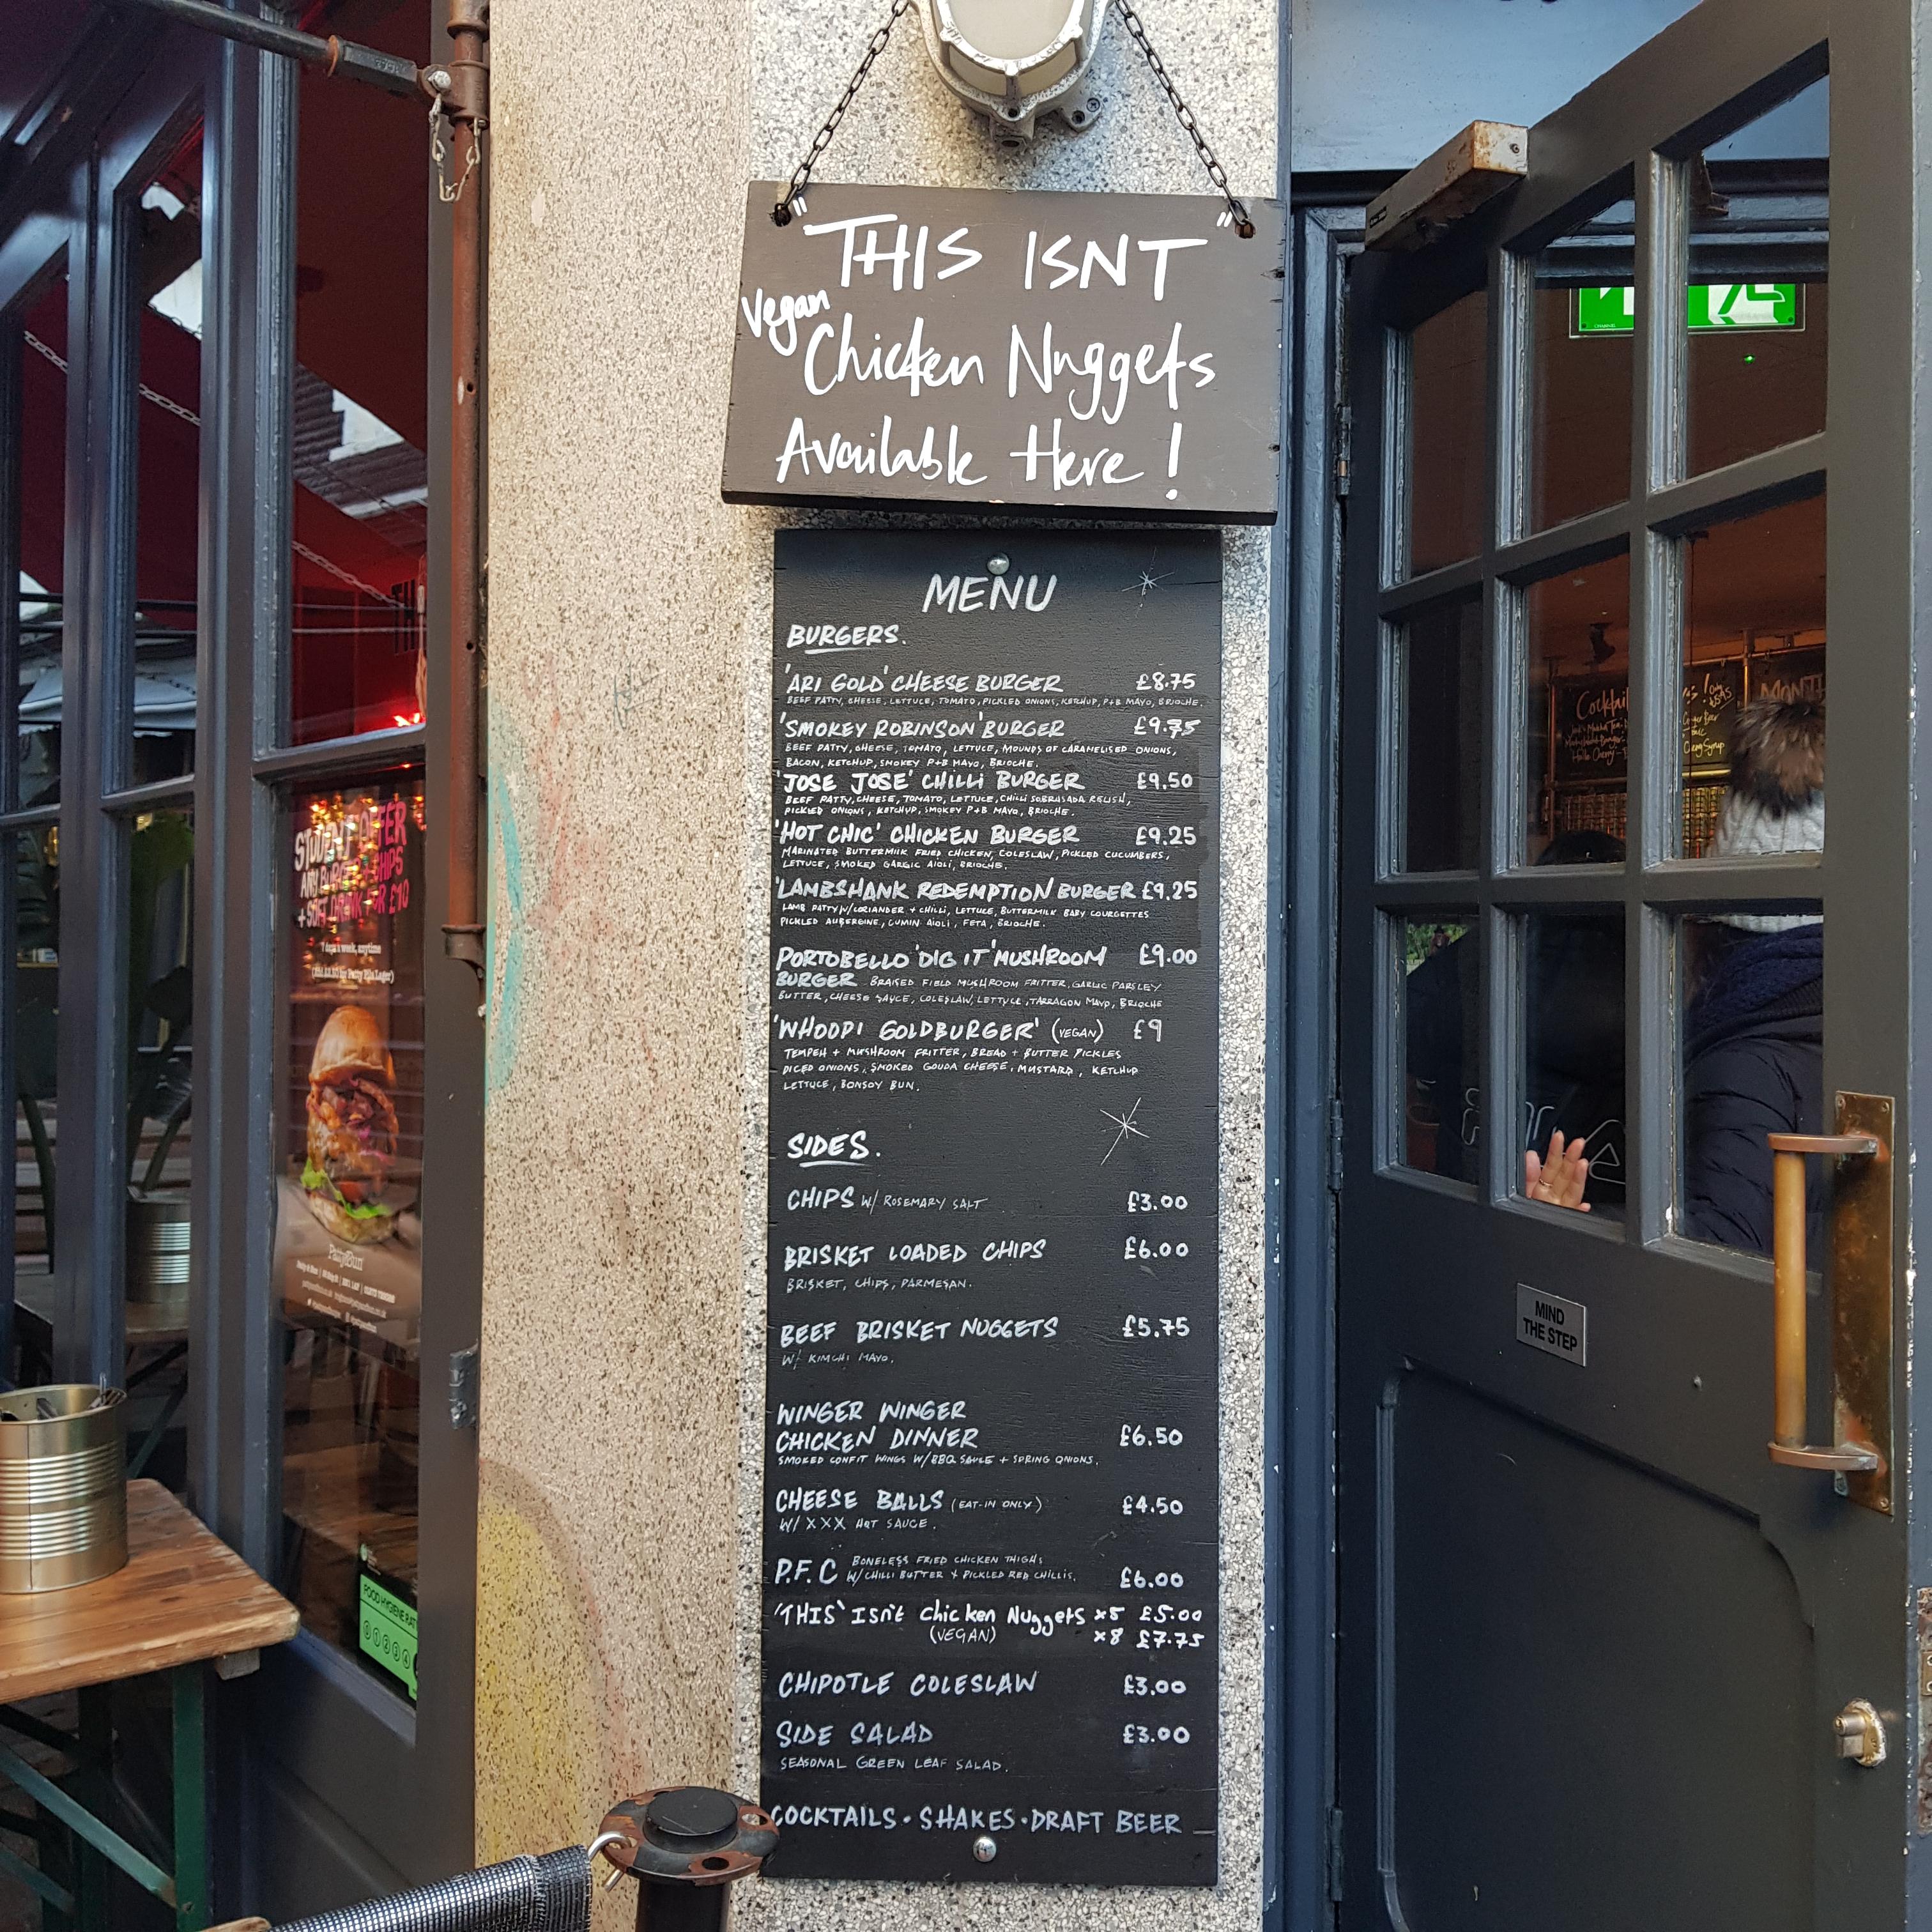 "THIS ISNT"
Vegan
Chicken Nuggets
Available Here!
MENU
BURGERS.
'ARI GOLD' CHEESE BURGER £8.75
BEEF PATTY, CHEESE, LETTUCE, TOMATO, PICKLED ONIONS, KETCHUP, P+B MAYO, BRIOCHE.
'SMOKEY ROBINSON' BURGER £9.75
BEEF PATTY, CHEESE, TOMATO, LETTUCE, MOUNDS OF CARAMELISED ONIONS,
BACON, KETCHUP, SMOKEY P+B MAYO, BRIOCHE.
'JOSE JOSE' CHILLI BURGER £9.50
BEEF PATTY, CHEESE, TOMATO, LETTUCE, CHILLI SOBRASADA RELISH,
PICKLED ONIONS, KETCHUP, SMOKEY P+B MAYO, BRIOCHE.
'HOT CHIC' CHICKEN BURGER £9.25
MARINATED BUTTERMILK FRIED CHICKEN, COLESLAW, PICKLED CUCUMBERS,
LETTUCE, SMOKED GARLIC AIOLI, BRIOCHE.
'LAMBSHANK REDEMPTION BURGER £9.25
LAMB PATTY W/CORIANDER + CHILLI, LETTUCE, BUTTERMILK BABY COURGETTES
PICKLED AUBERGINE, CUMIN AIOLI, FETA, BRIOCHE.
PORTOBELLO 'DIG IT' MUSHROOM £9.00
BURGER BRAISED FIELD MUSHROOM FRITTER, GARLIC PARSLEY
BUTTER, CHEESE SAUCE, COLESLAW, LETTUCE, TARRAGON MAYO, BRIOCHE
'WHOOPI GOLDBURGER' (VEGAN) £9
TEMPEH + MUSHROOM FRITTER, BREAD + BUTTER PICKLES
DICED ONIONS, SMOKED GOUDA CHEESE, MUSTARD, KETCHUP
LETTUCE, BONSOY BUN.
SIDES.
CHIPS W/ ROSEMARY SALT £3.00
BRISKET LOADED CHIPS £6.00
BRISKET, CHIPS, PARMESAN.
BEEF BRISKET NUGGETS £5.75
W/ KIMCHI MAYO.
WINGER WINGER
CHICKEN DINNER £6.50
SMOKED CONFIT WINGS W/ BBQ SAUCE + SPRING ONIONS.
CHEESE BALLS (EAT-IN ONLY) £4.50
W/ XXX HOT SAUCE.
P.F.C BONELESS FRIED CHICKEN THIGHS
W/ CHILLI BUTTER + PICKLED RED CHILLIS. £6.00
'THIS' Isn't Chicken Nuggets x5 £5.00
(VEGAN) x8 £7.75
CHIPOTLE COLESLAW £3.00
SIDE SALAD £3.00
SEASONAL GREEN LEAF SALAD.
COCKTAILS · SHAKES · DRAFT BEER
STUDENT OFFER
ANY BURGER + CHIPS
+ SOFT DRINK FOR £10
7 days a week, anytime
Patty&Bun
FOOD HYGIENE RATING
MIND
THE STEP
Cocktail